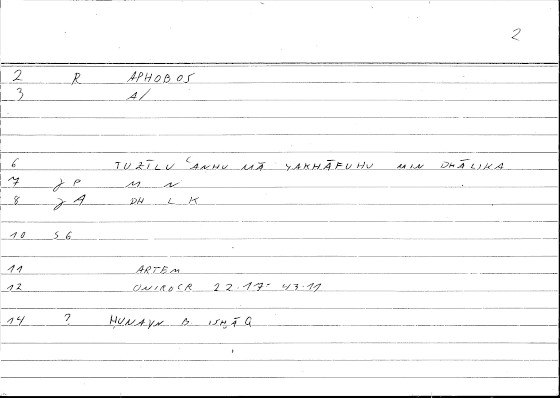 2
2 R APHOBOS
3 A/
6 TUZĪLU ʿANHU MĀ YAKHĀFUHU MIN DHĀLIKA
7 γ P M N
8 γ A DH L K
10 S6
11 ARTEM
12 ONIROCR 22.17- 43.11
14 ? ḤUNAYN B ISḤĀQ